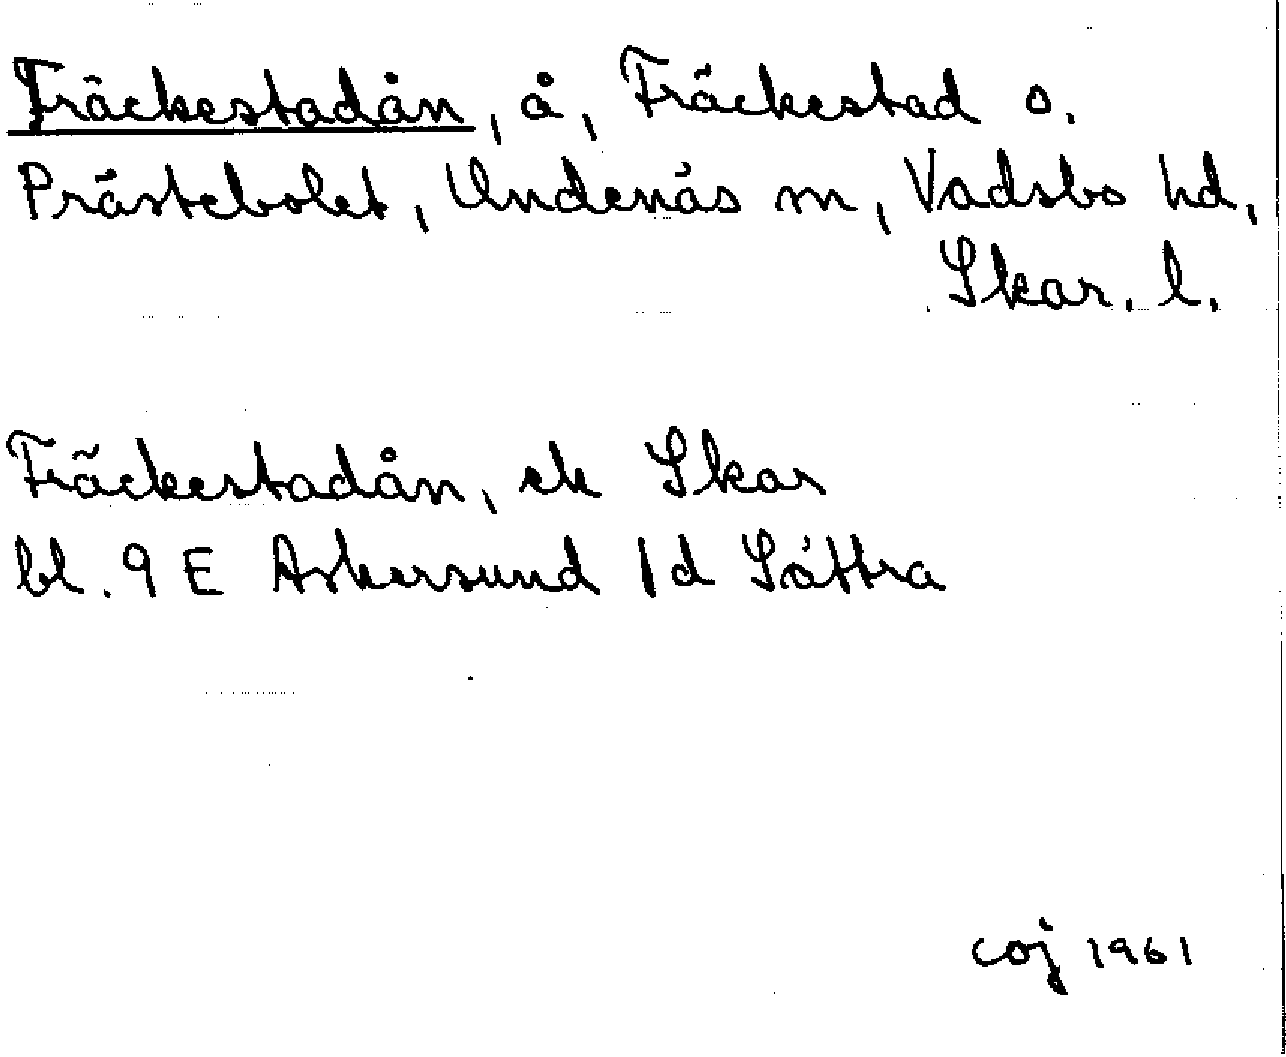 Fräckestadån, å, Fräckestad o.
Prästebolet, Undenäs m, Vadsbo hd,
Skar. l.
Fräckestadån, ek Skar
bl. 9 E Askersund 1d Sättra
coj 1961